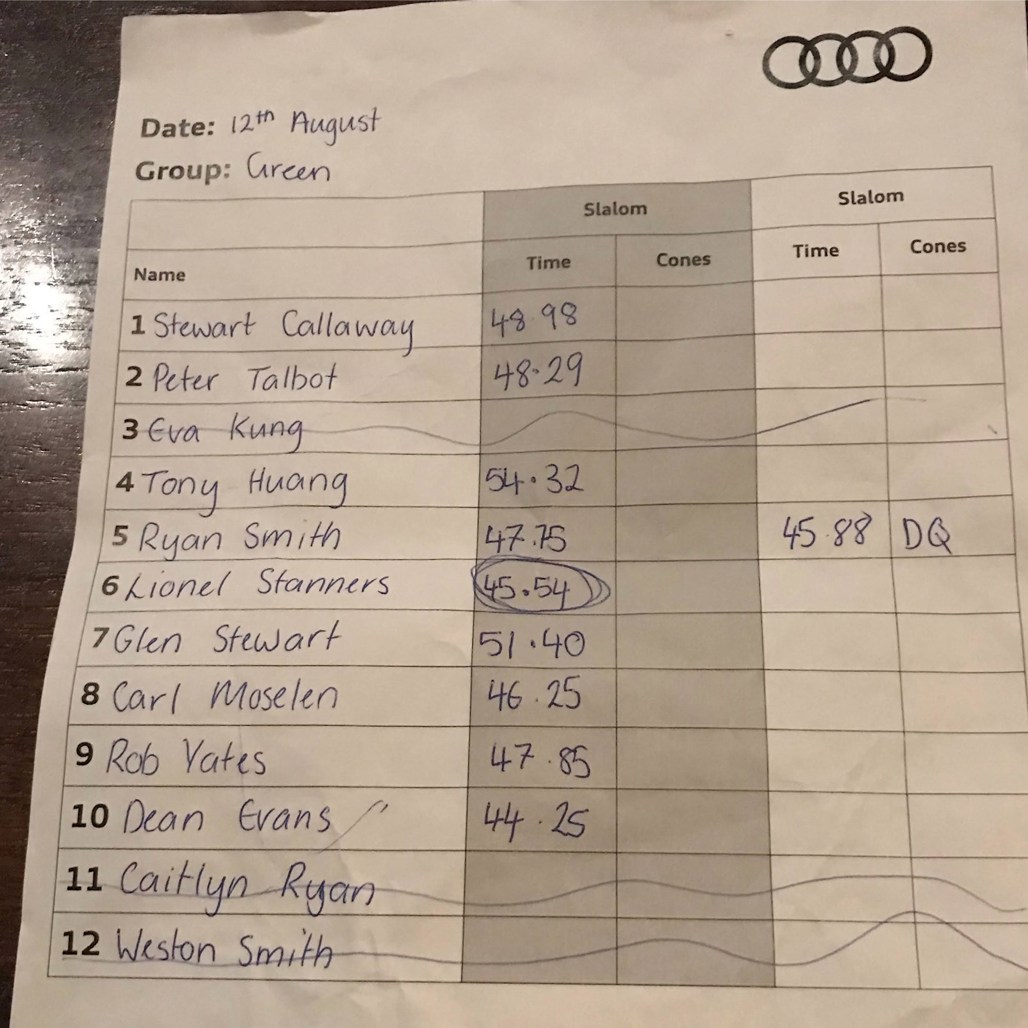 Date: 12th August
Group: Green
Slalom Slalom
Name Time Cones Time Cones
1 Stewart Callaway 48.98
2 Peter Talbot 48.29
3 Eva Kung
4 Tony Huang 54.32
5 Ryan Smith 47.75 45.88 DQ
6 Lionel Stanners 45.54
7 Glen Stewart 51.40
8 Carl Moselen 46.25
9 Rob Yates 47.85
10 Dean Evans 44.25
11 Caitlyn Ryan
12 Weston Smith